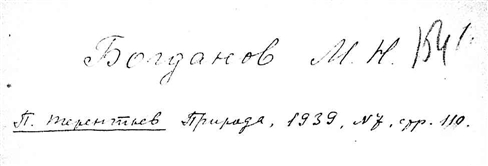 Богданов М. Н.
П. Терентьев Природа, 1939, №7, стр. 110.